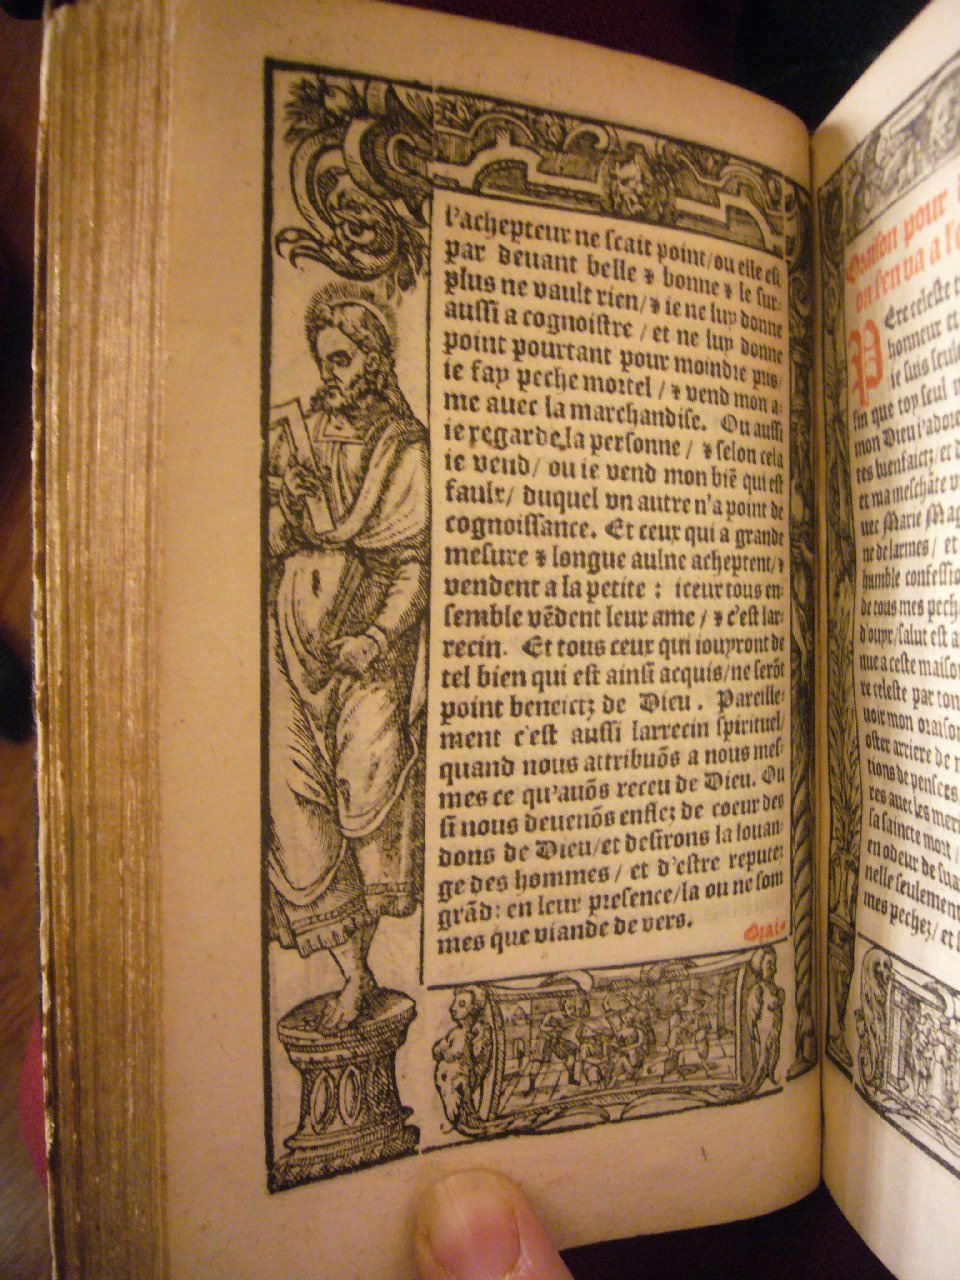 l'achepteur ne scait point/ou elle est
par devant belle & bonne & le sur-
plus ne vault rien/& ie ne luy donne
aussi a cognoistre / et ne luy donne
point pourtant pour moindre pris
ie fay peche mortel / & vend mon a-
me avec la marchandise. Ou aussi
ie regarde la personne / & selon cela
ie vend/ ou ie vend mon biẽ qui est
faulx/ duquel vn autre n'a point de
cognoissance. Et ceux qui a grande
mesure & longue aulne acheptent/&
vendent a la petite : iceux tous en-
semble vẽdent leur ame / & c'est lar-
recin. Et tous ceux qui iouyront de
tel bien qui est ainsi acquis/ne serõt
point benictz de Dieu. Pareille-
ment c'est aussi larrecin spirituel/
quand nous attribuõs a nous mes-
mes ce qu'auõs receu de Dieu. Ou
si nous deuenõs enflez de coeur des
dons de Dieu/et desirons la louan-
ge des hommes/ et d'estre reputez
grãd: en leur presence/la ou ne som
mes que viande de vers.
Orai-
Oraison pour
on s'en va a l'e
PEre celeste
honneur et
ie suis seule
fin que toy seul
mon Dieu l'adore
tes bienfaictz/et d
et ma meschãte
uec Marie Mag
ne de larmes/ et
humble confessio
de tous mes pech
d'ouyr/salut est a
nue a ceste maison
re celeste par ton
uoir mon oraison
oster arriere de
tions de pensees
res auec les meri
sa saincte mort /
en odeur de sua
nelle seulement
mes pechez/ et